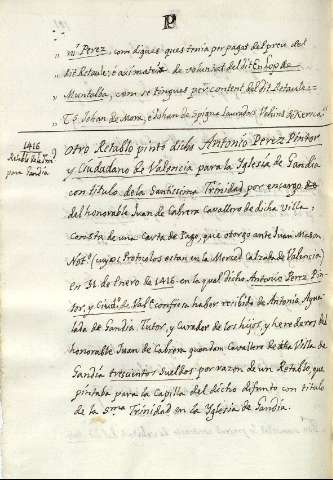 P
„ ni Perez, com digues ques tenia per pagat del preu del
„ dit Retaule, é axi mateix de voluntat del dit En Lop de
„ Muntalba, com se tingues per content del dit Retaule =
„ T.s Johan de Mora, é Johan de Spigue Sauradors Vehins de Xerica.
1416
Retablo de la Trinid.
para Gandia
Otro Retablo pintó dicho Antonio Perez Pintor
y Ciudadano de Valencia para la Iglesia de Gandia
con titulo de la Santissima Trinidad por encargo
del honorable Juan de Cabrera Cavallero de dicha Villa,
consta de una Carta de Pago, que otorgo ante Juan Meson
Not.o (cuyos Protocolos estan en la Merced Calzada de Valencia)
en 31 de Enero de 1416. en la qual dicho Antonio Perez Pin-
tor, y Ciud.o de Val.a confiesa haber recibido de Antonio Agua
lada de Gandia Tutor, y Curador de los hijos, y herederos del
honorable Juan de Cabrera quondam Cavallero de dha Villa de
Gandia trescientos Sueldos por razon de un Retablo, que
pintaba para la Capilla del dicho difunto con titulo
de la S.ma Trinidad en la Iglesia de Gandia.